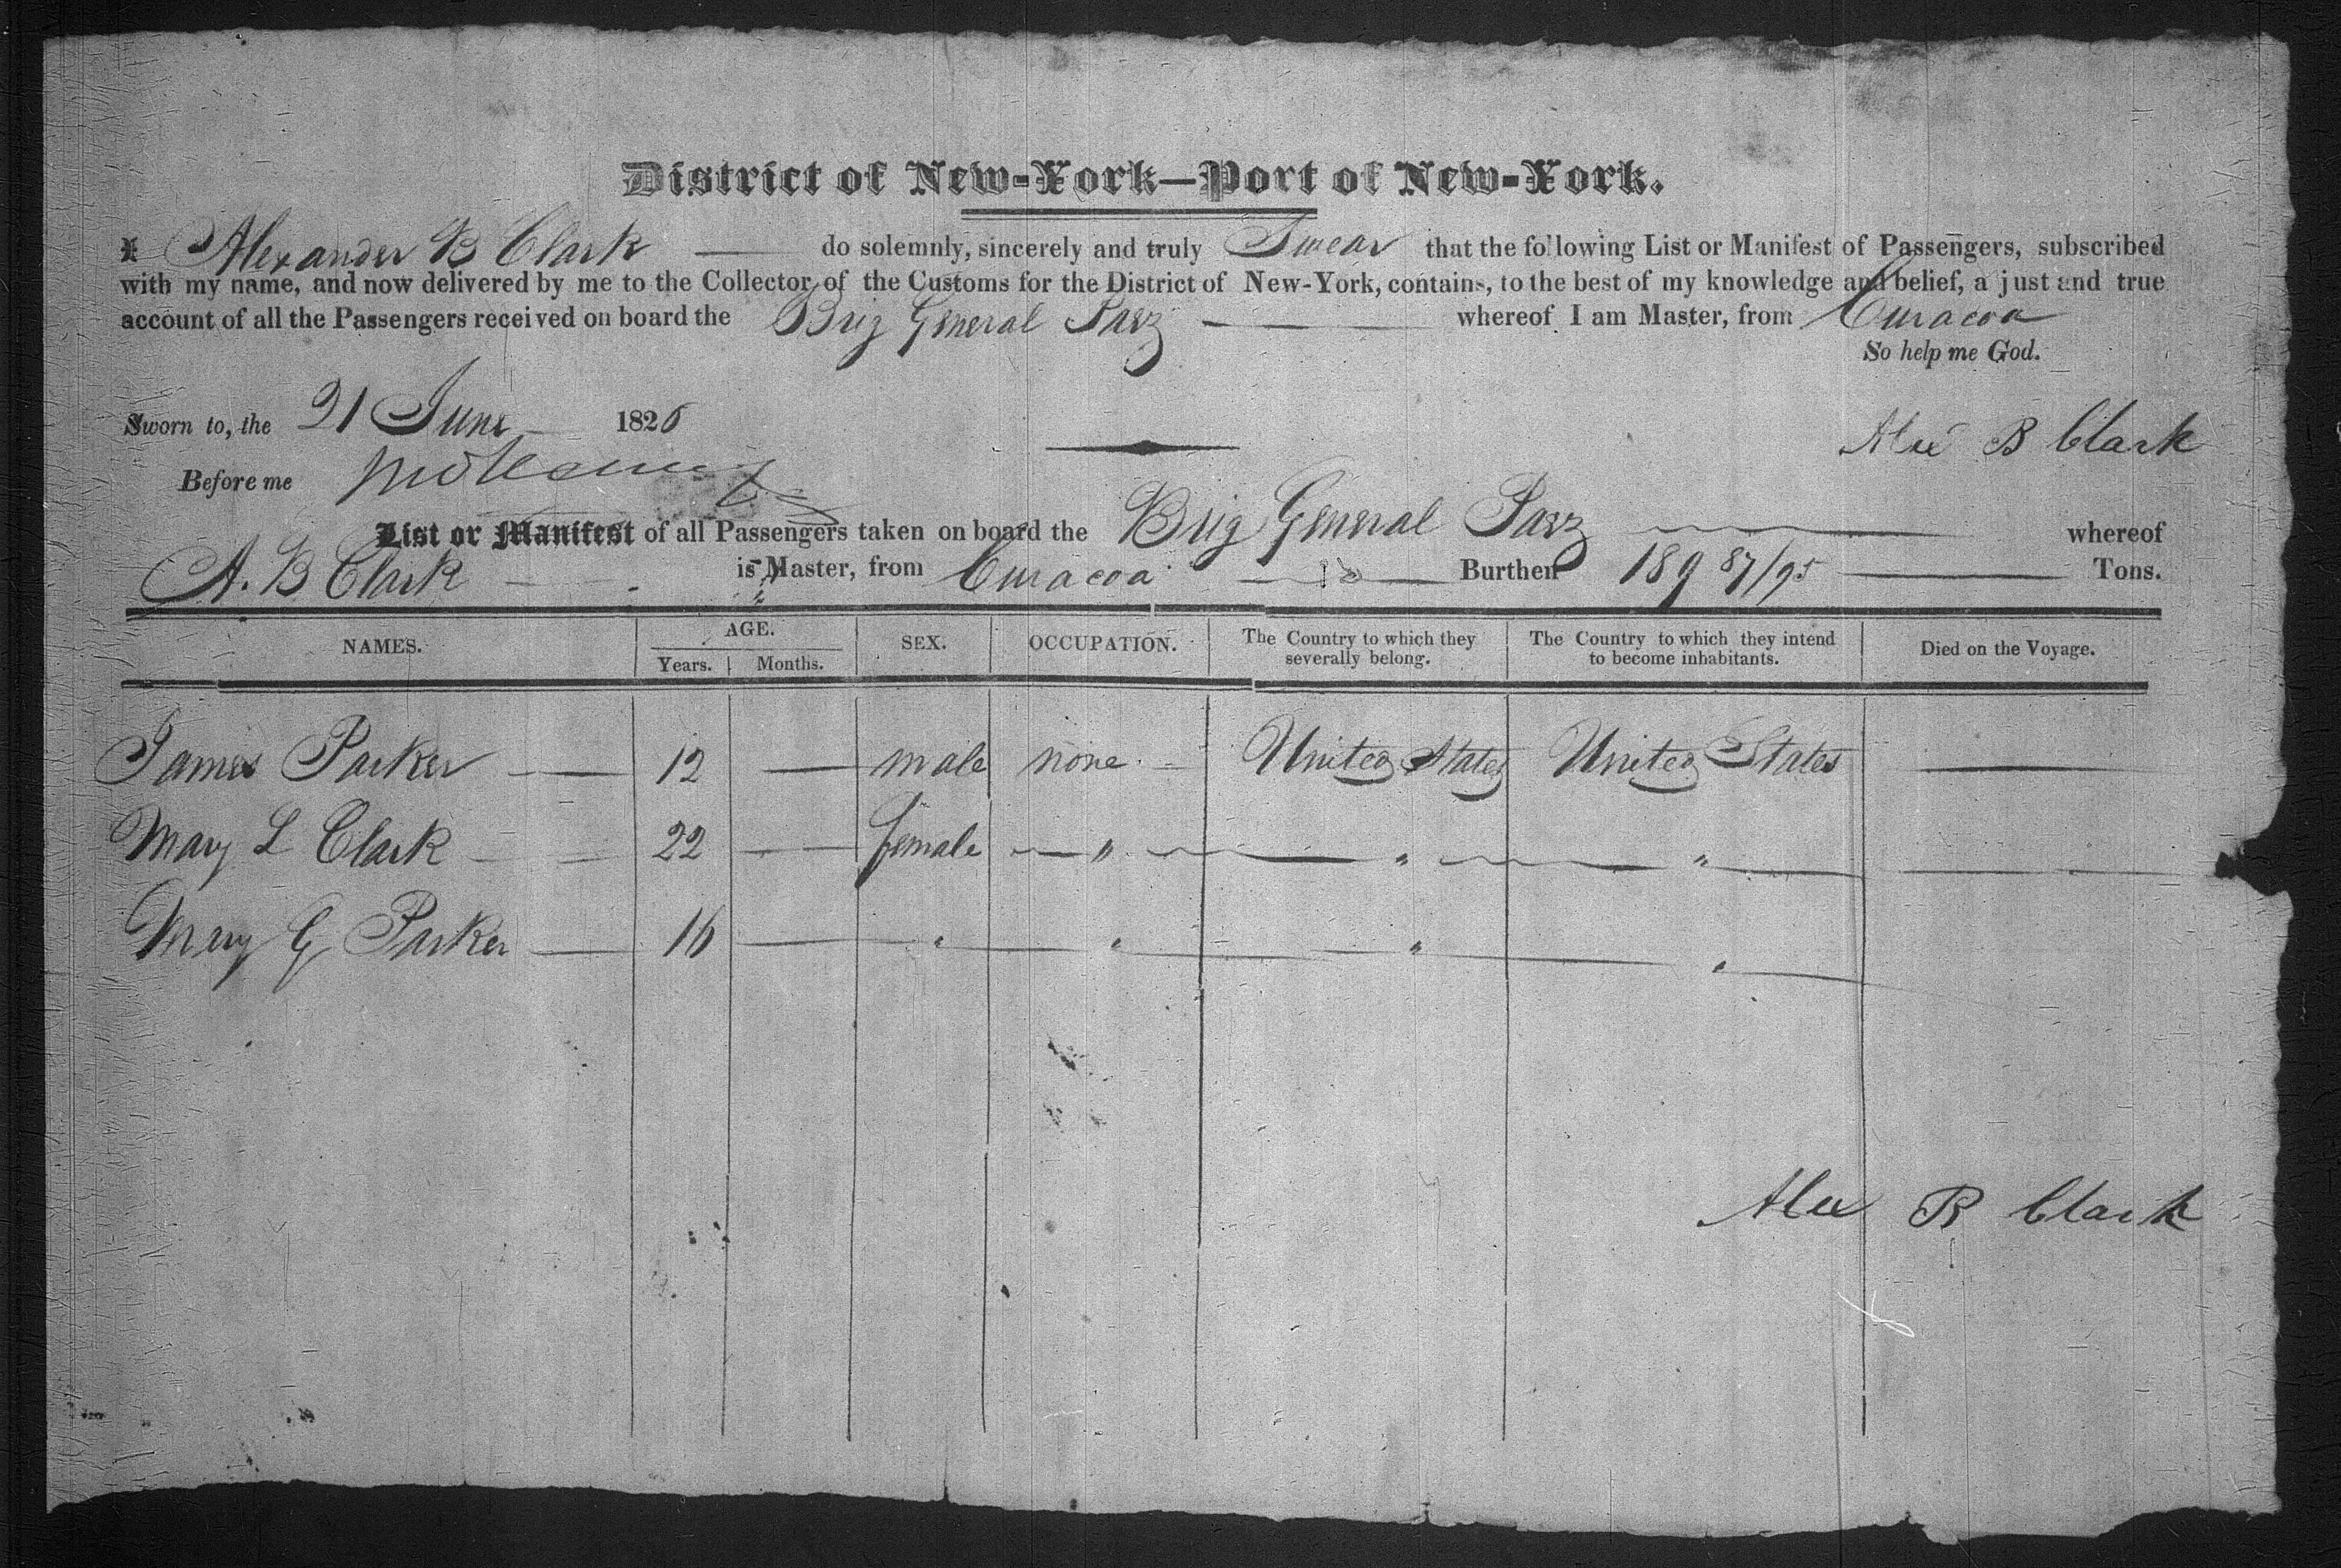 District of New-York—Port of New-York.
I Alexander B Clark do solemnly, sincerely and truly Swear that the following List or Manifest of Passengers, subscribed
with my name, and now delivered by me to the Collector of the Customs for the District of New-York, contains, to the best of my knowledge and belief, a just and true
account of all the Passengers received on board the Brig General Paez whereof I am Master, from Curacoa
So help me God.
Sworn to, the 21 June 1826
Alex B Clark
Before me
List or Manifest of all Passengers taken on board the Brig General Paez whereof
A. B Clark is Master, from Curacoa Burthen 189 87/95 Tons.
NAMES. AGE. SEX. OCCUPATION. The Country to which they severally belong. The Country to which they intend to become inhabitants. Died on the Voyage.
Years. Months.
James Parker — 12 — male none — United States United States —
Mary L Clark — 22 — female — " — " — " —
Mary G Parker — 16 — " " " "
Alex B Clark